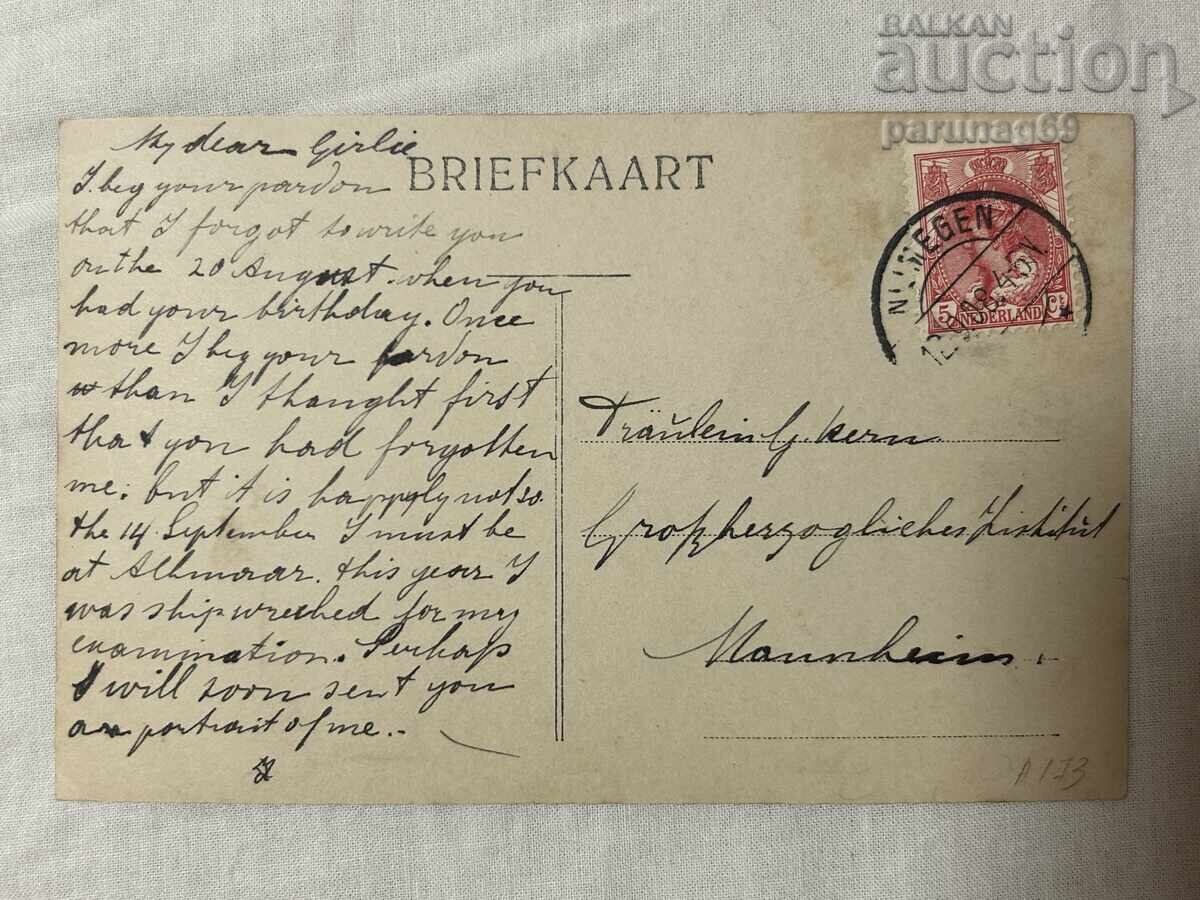 BALKAN
auction
parunag69
My dear Girlie
BRIEFKAART
I beg your pardon
that I forgot to write you
on the 20 August when you
had your birthday. Once
more I beg your pardon
than I thaught first
that you had forgotten
me; but it is happyly not so
the 14 September I must be
at Alkmaar. this year I
was shipwrecked for my
examination. Perhaps
I will soon sent you
a portrait of me.-
Fräulein G. Kern
Großherzogliches Institut
Mannheim.
NIJMEGEN
5 Ct
NEDERLAND
A 173